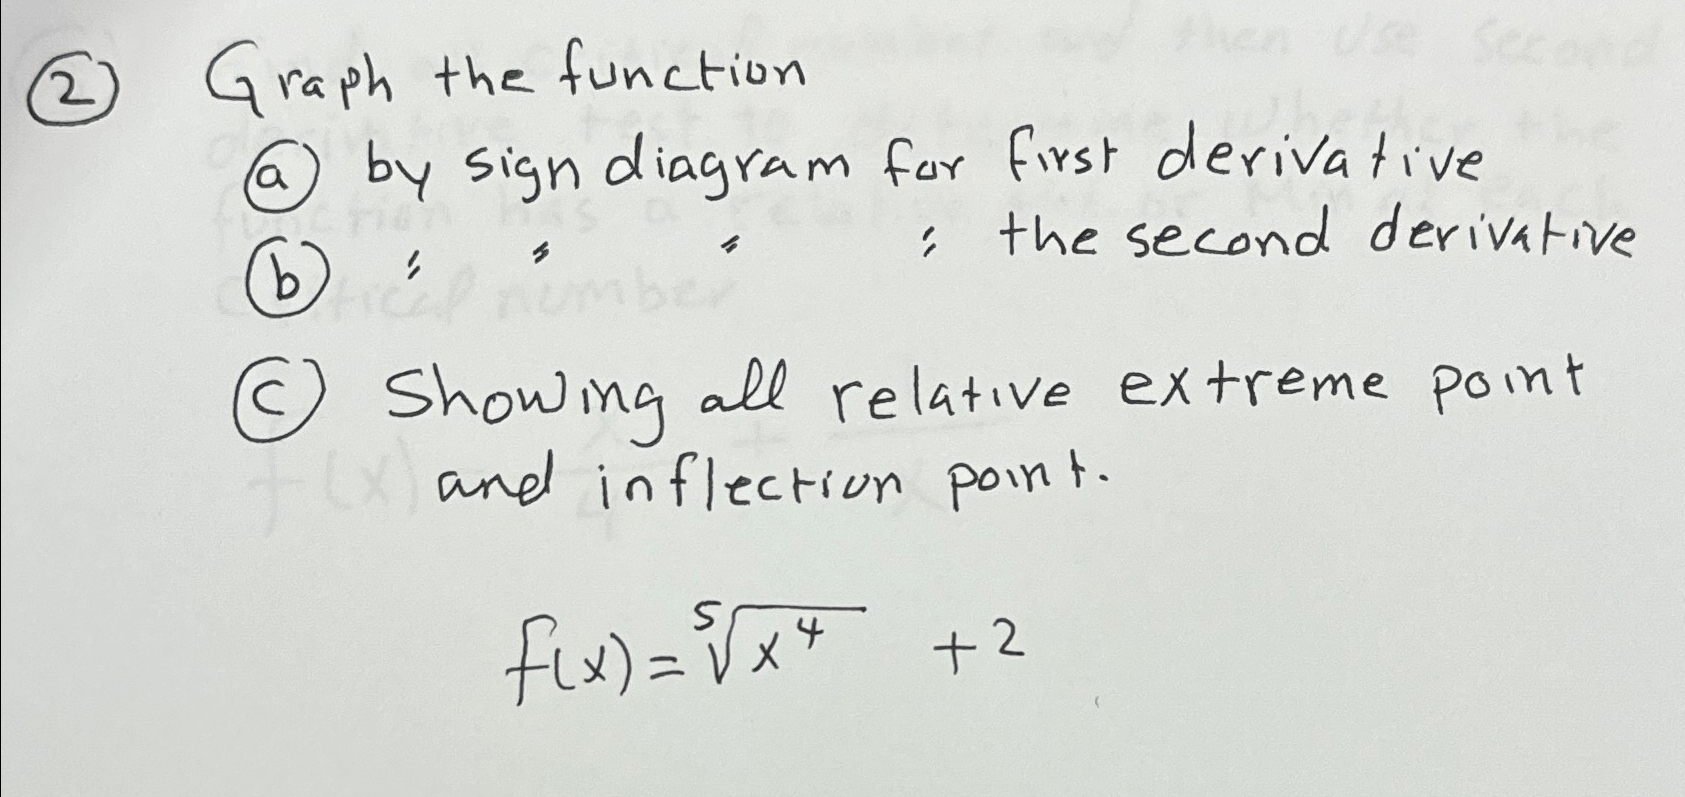 ② Graph the function
ⓐ by sign diagram for first derivative
ⓑ " " " " the second derivative
ⓒ Showing all relative extreme point
and inflection point.
f(x) = ⁵√x⁴ + 2